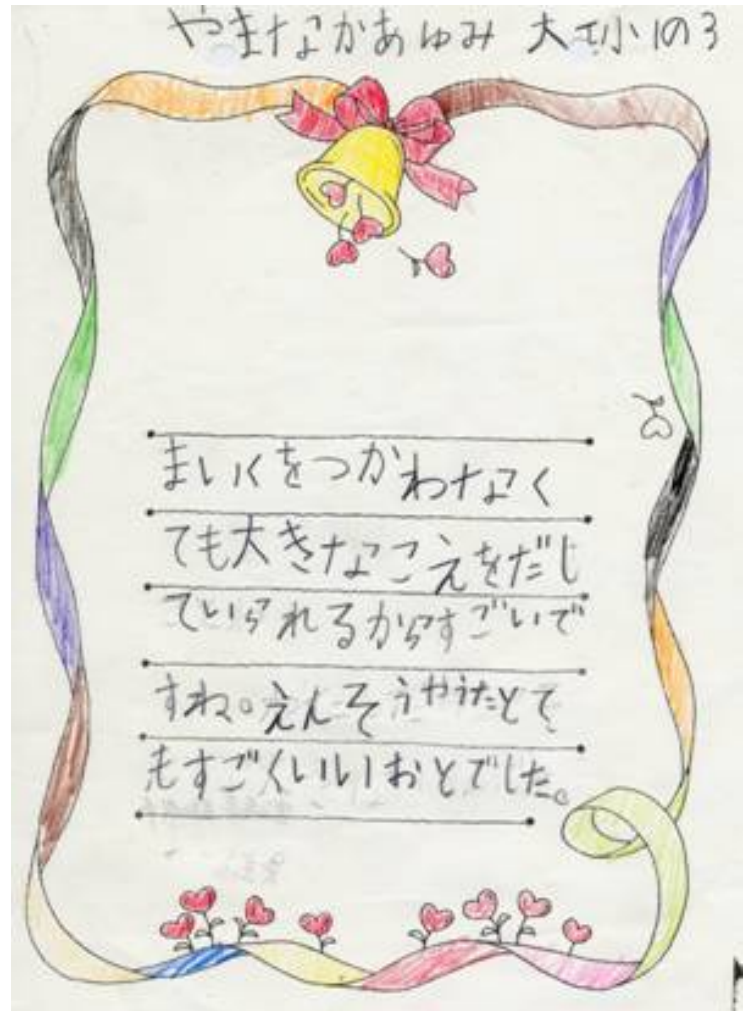 やまなかあゆみ 大江小1の3
まいくをつかわなく
ても大きなこえをだし
ていられるからすごいで
すね。えんそうやうたとて
もすごくいいおとでした。